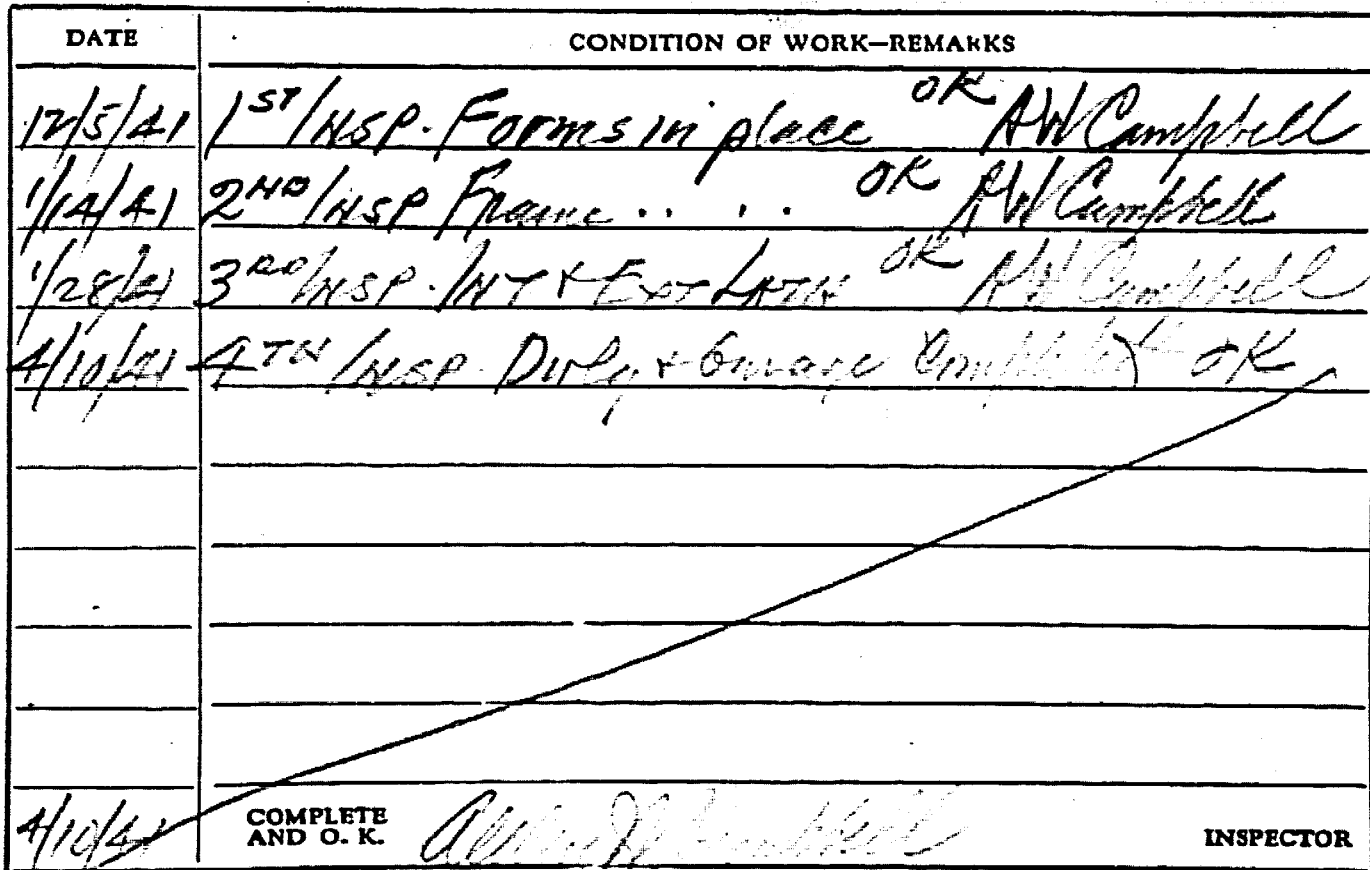 DATE CONDITION OF WORK—REMARKS
12/5/41 1ST INSP. Forms in place OK AW Campbell
1/14/41 2ND INSP Frame .. .. OK AW Campbell
1/28/41 3RD INSP. INT & EXT LATH OK AW Campbell
4/10/41 4TH INSP. Dwlg & Garage Completed OK
4/10/41 COMPLETE AND O. K. Campbell INSPECTOR